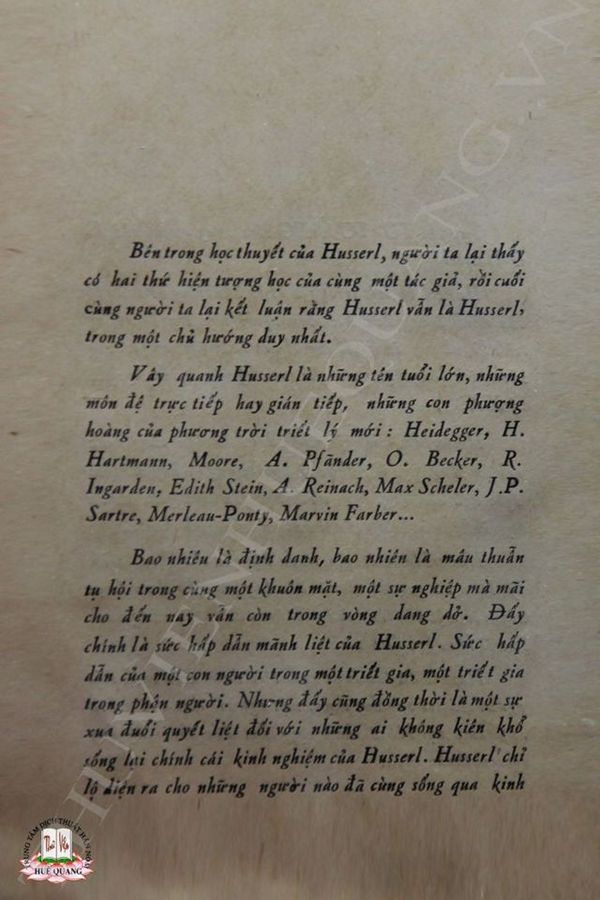 Bên trong học thuyết của Husserl, người ta lại thấy
có hai thứ hiện tượng học của cùng một tác giả, rồi cuối
cùng người ta lại kết luận rằng Husserl vẫn là Husserl,
trong một chủ hướng duy nhất.
Vây quanh Husserl là những tên tuổi lớn, những
môn đệ trực tiếp hay gián tiếp, những con phượng
hoàng của phương trời triết lý mới : Heidegger, H.
Hartmann, Moore, A. Pfänder, O. Becker, R.
Ingarden, Edith Stein, A. Reinach, Max Scheler, J.P.
Sartre, Merleau-Ponty, Marvin Farber...
Bao nhiêu là định danh, bao nhiên là mâu thuẫn
tụ hội trong cùng một khuôn mặt, một sự nghiệp mà mãi
cho đến nay vẫn còn trong vòng dang dở. Đấy
chính là sức hấp dẫn mãnh liệt của Husserl. Sức hấp
dẫn của một con người trong một triết gia, một triết gia
trong phận người. Nhưng đấy cũng đồng thời là một sự
xua đuổi quyết liệt đối với những ai không kiên khổ
sống lại chính cái kinh nghiệm của Husserl. Husserl chỉ
lộ diện ra cho những người nào đã cùng sống qua kinh
TRUNG TÂM DỊCH THUẬT HÁN NÔM
HUỆ QUANG